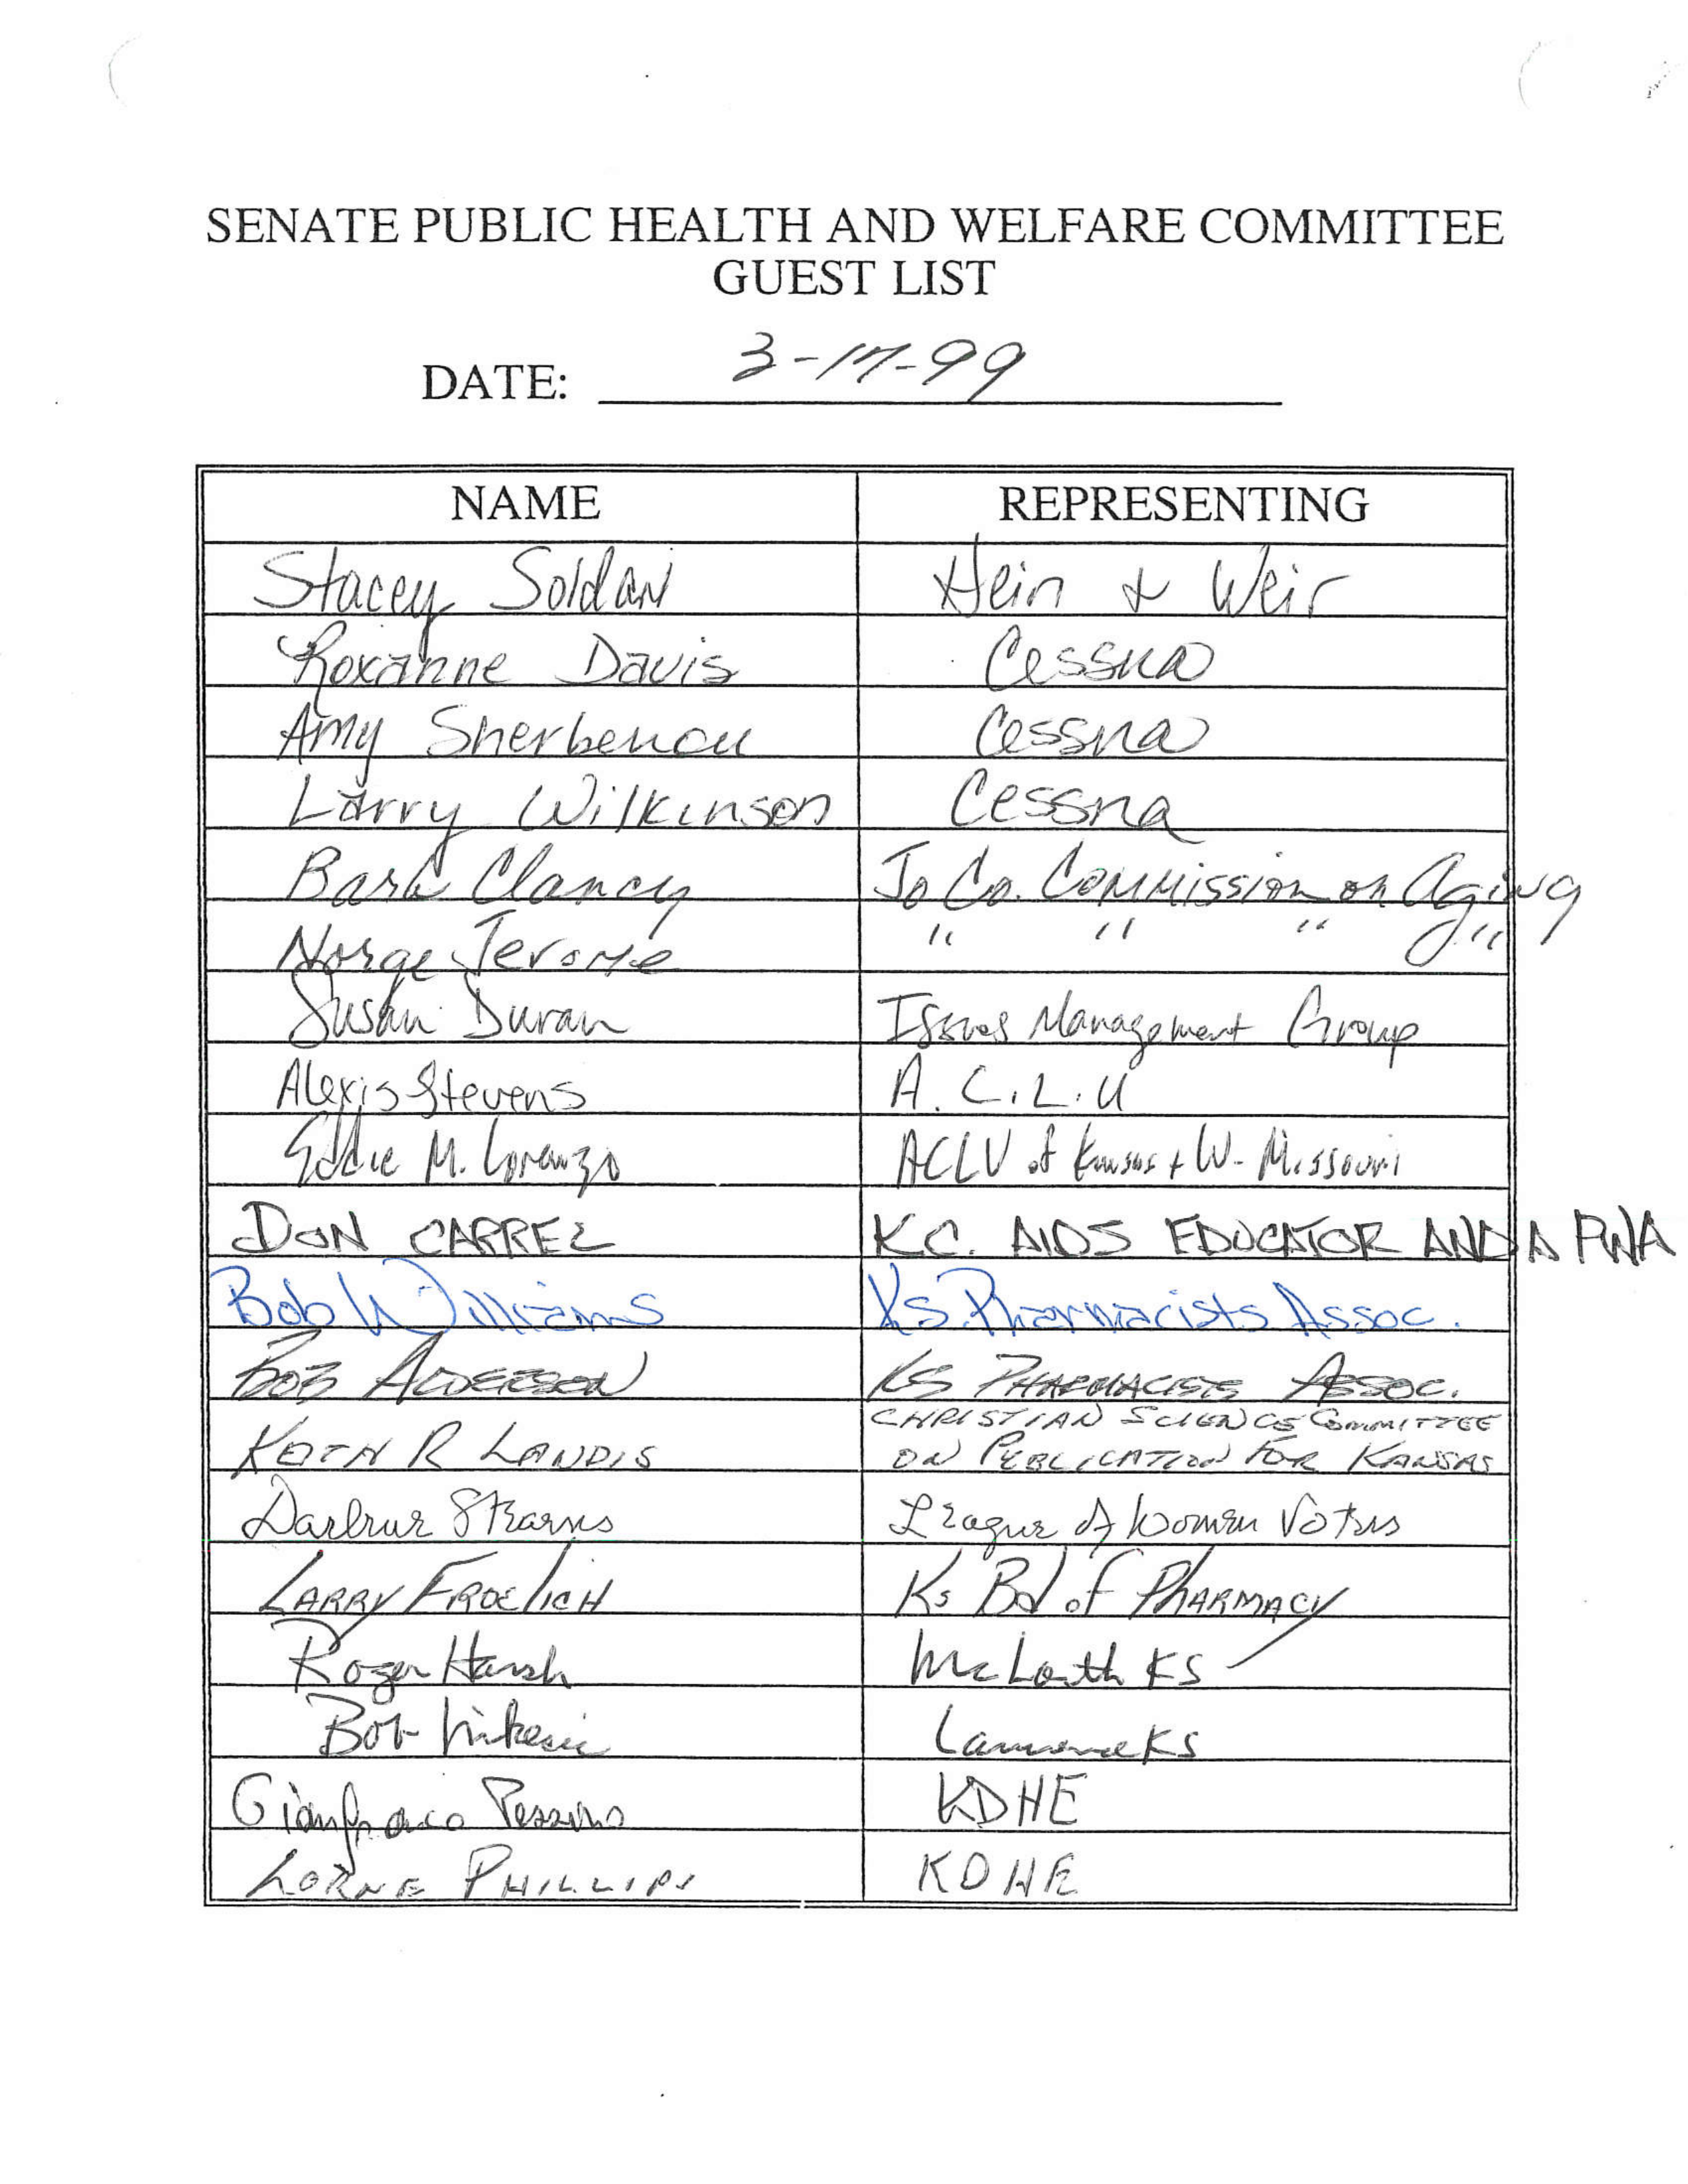 SENATE PUBLIC HEALTH AND WELFARE COMMITTEE
GUEST LIST
DATE: 3-17-99
NAME REPRESENTING
Stacey Soldan Hein & Weir
Roxanne Davis Cessna
Amy Sherbenou Cessna
Larry Wilkinson Cessna
Barb Clancy Jo Co. Commission on Aging
Norge Jerome " " " "
Susan Duran Issues Management Group
Alexis Stevens A.C.L.U
Eddie M. Lorenzo ACLU of Kansas + W. Missouri
DON CARREL K.C. AIDS EDUCATOR AND A PWA
Bob Williams Ks. Pharmacists Assoc.
BOB ANDERSON KS PHARMACISTS ASSOC.
CHRISTIAN SCIENCE COMMITTEE
KEITH R LANDIS ON PUBLICATION FOR KANSAS
Stearns League of Women Voters
LARRY FROELICH Ks Bd of PHARMACY
Roger Harsh McLouth KS
Bob KS
Gianfranco Pezzino KDHE
LORNE PHILLIPS KDHE